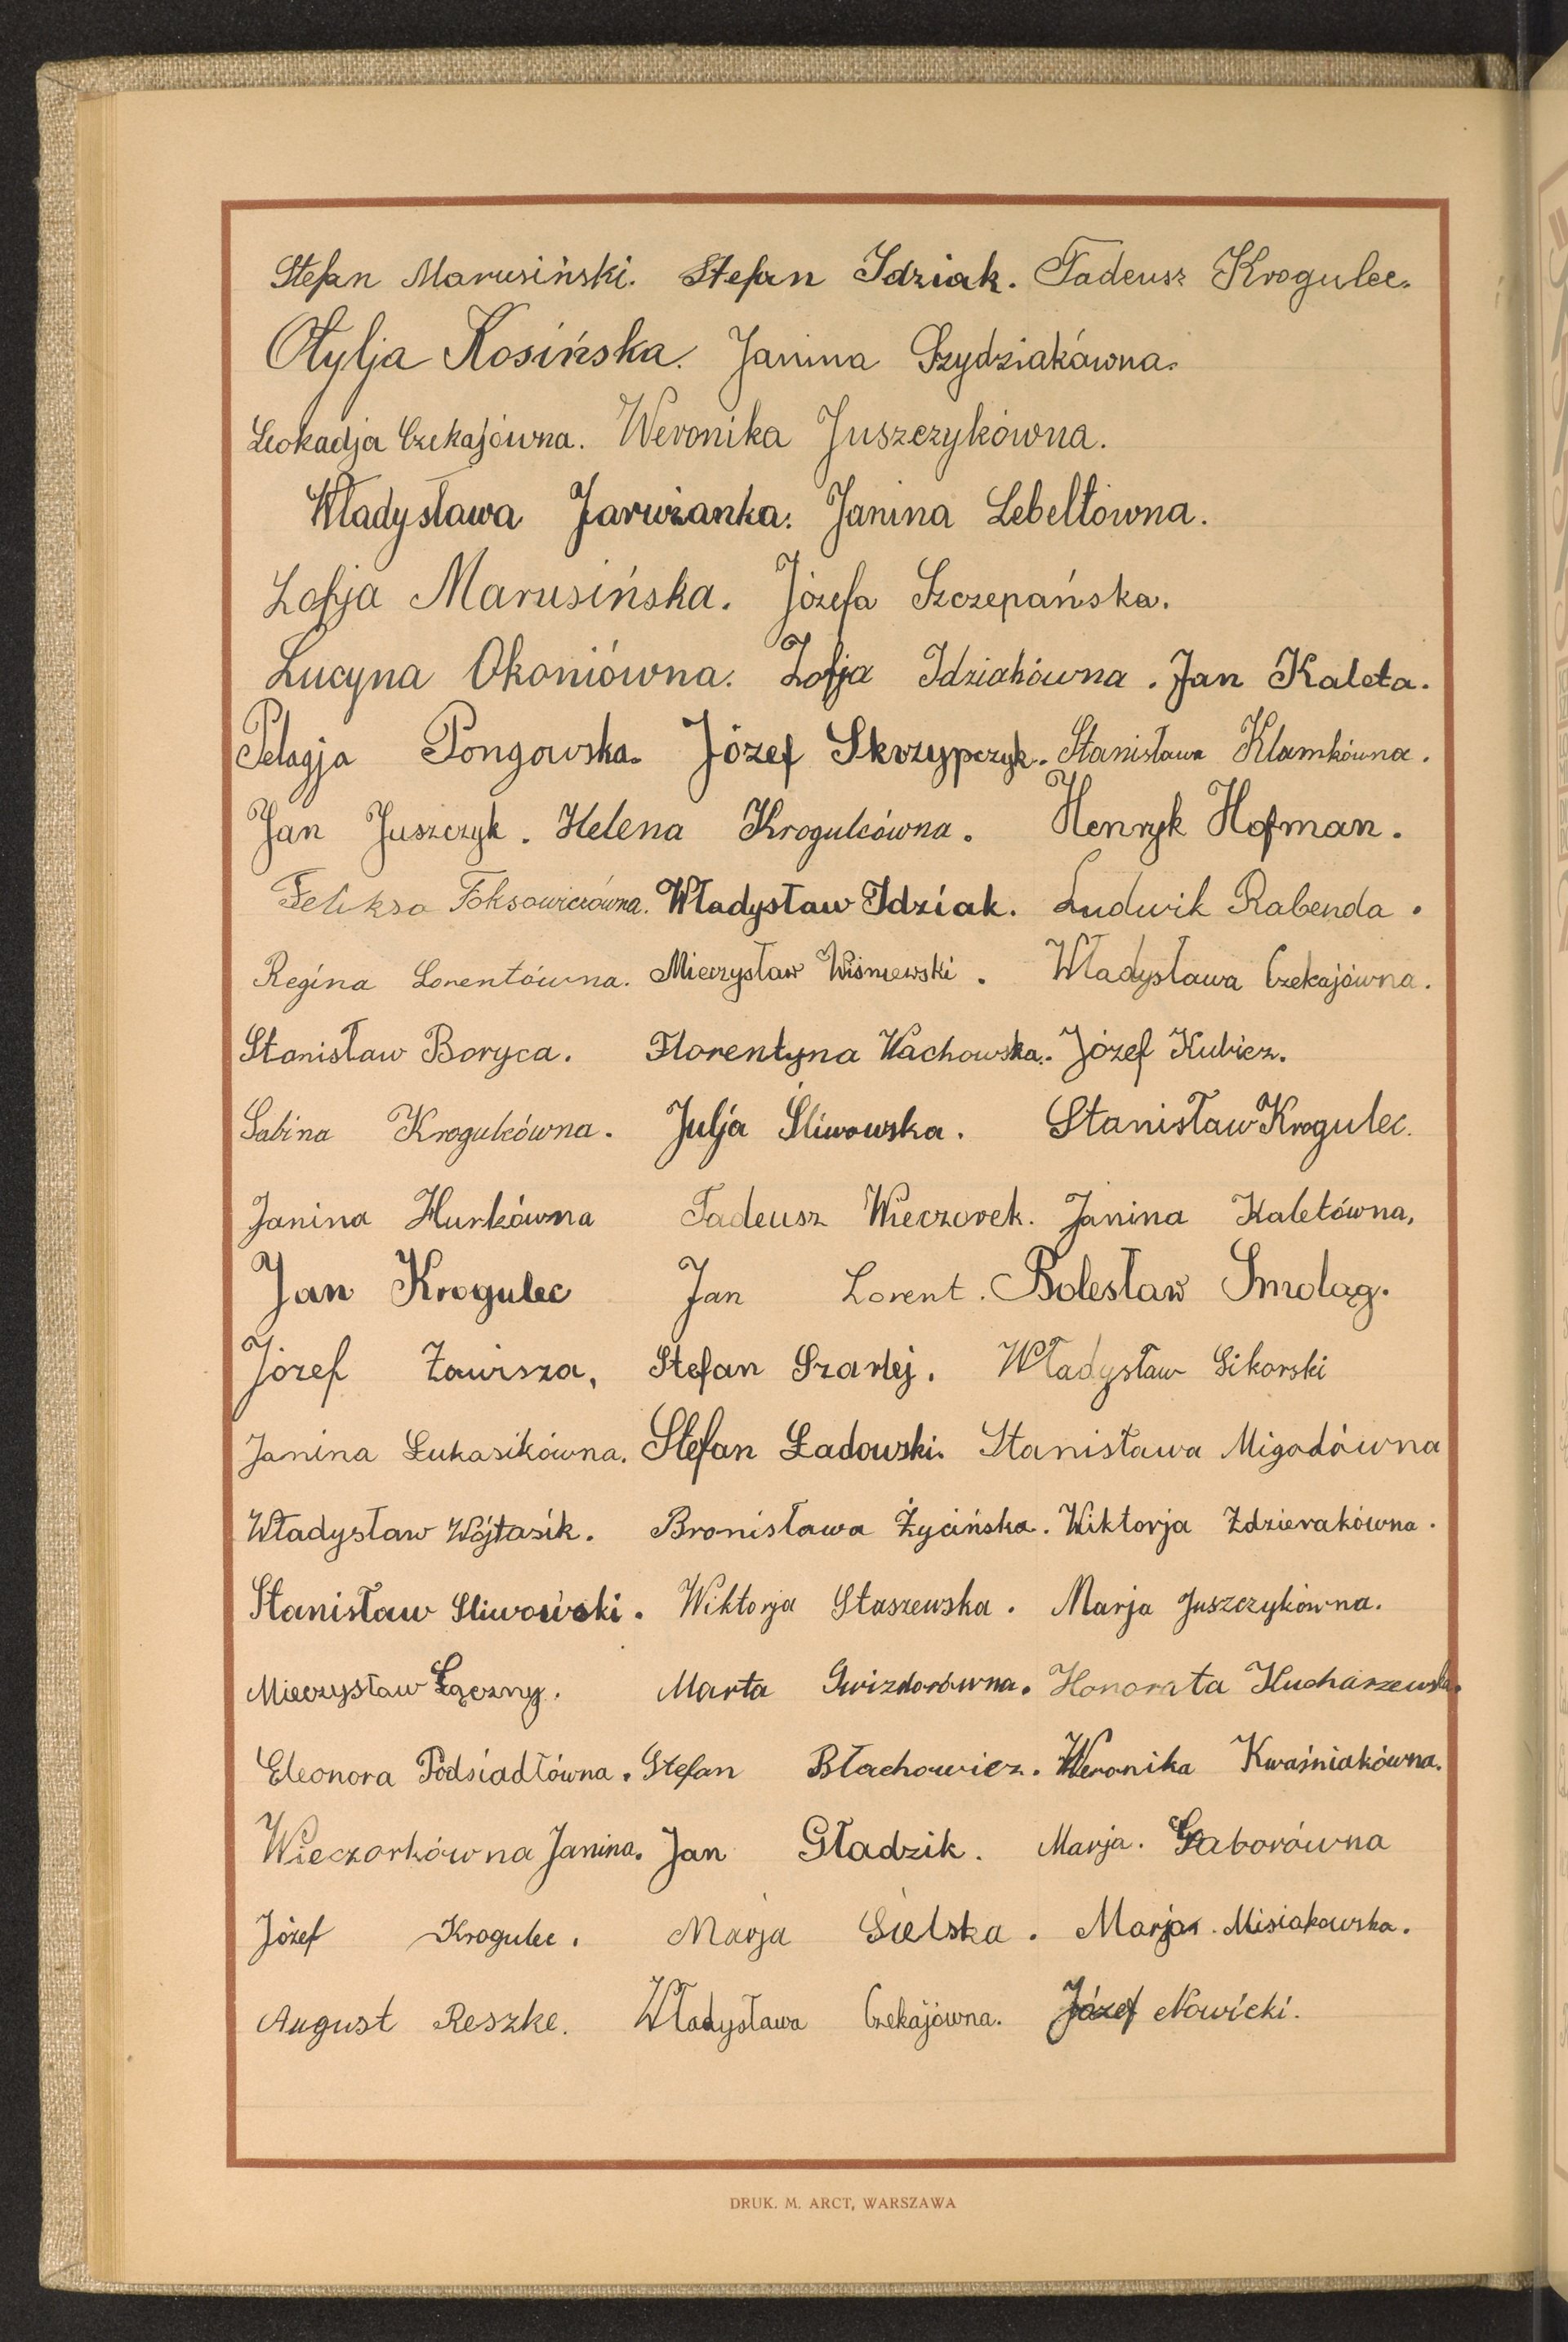 Stefan Marusiński. Stefan Idziak. Tadeusz Krogulec.
Otylja Kosińska. Janina Szydziakówna.
Leokadja Czekajówna. Weronika Juszczykówna.
Władysława Jarużanka. Janina Lebeltówna.
Zofja Marusińska. Józefa Szczepańska.
Lucyna Okoniówna. Zofja Idziakówna. Jan Kaleta.
Pelagja Pongowska. Józef Skrzypczyk. Stanisława Klamkówna.
Jan Juszczyk. Helena Krogulcówna. Henryk Hofman.
Feliksa Foksowiczówna. Władysław Idziak. Ludwik Rabenda.
Regina Lorentówna. Mieczysław Wiśniewski. Władysława Czekajówna.
Stanisław Boryca. Florentyna Wachowska. Józef Kubicz.
Sabina Krogulcówna. Julja Śliwowska. Stanisław Krogulec.
Janina Hurkówna Tadeusz Wieczorek. Janina Kaletówna,
Jan Krogulec Jan Lorent. Bolesław Smolag.
Józef Zawisza, Stefan Szarlej. Władysław Sikorski
Janina Łukasikówna. Stefan Ładowski. Stanisława Migodówna
Władysław Wójtasik. Bronisława Życińska. Wiktorja Zdzierakówna.
Stanisław Sliwowski. Wiktorja Staszewska. Marja Juszczykówna.
Mieczysław Łączny. Marta Gwizdorówna. Honorata Kucharzewska.
Eleonora Podsiadłówna. Stefan Błachowicz. Weronika Kwaśniakówna.
Wieczorkówna Janina. Jan Gładzik. Marja. Gaborówna
Józef Krogulec. Marja Sielska. Marja. Misiakowska.
August Reszke. Władysława Czekajówna. Józef Nowicki.
DRUK. M. ARCT, WARSZAWA